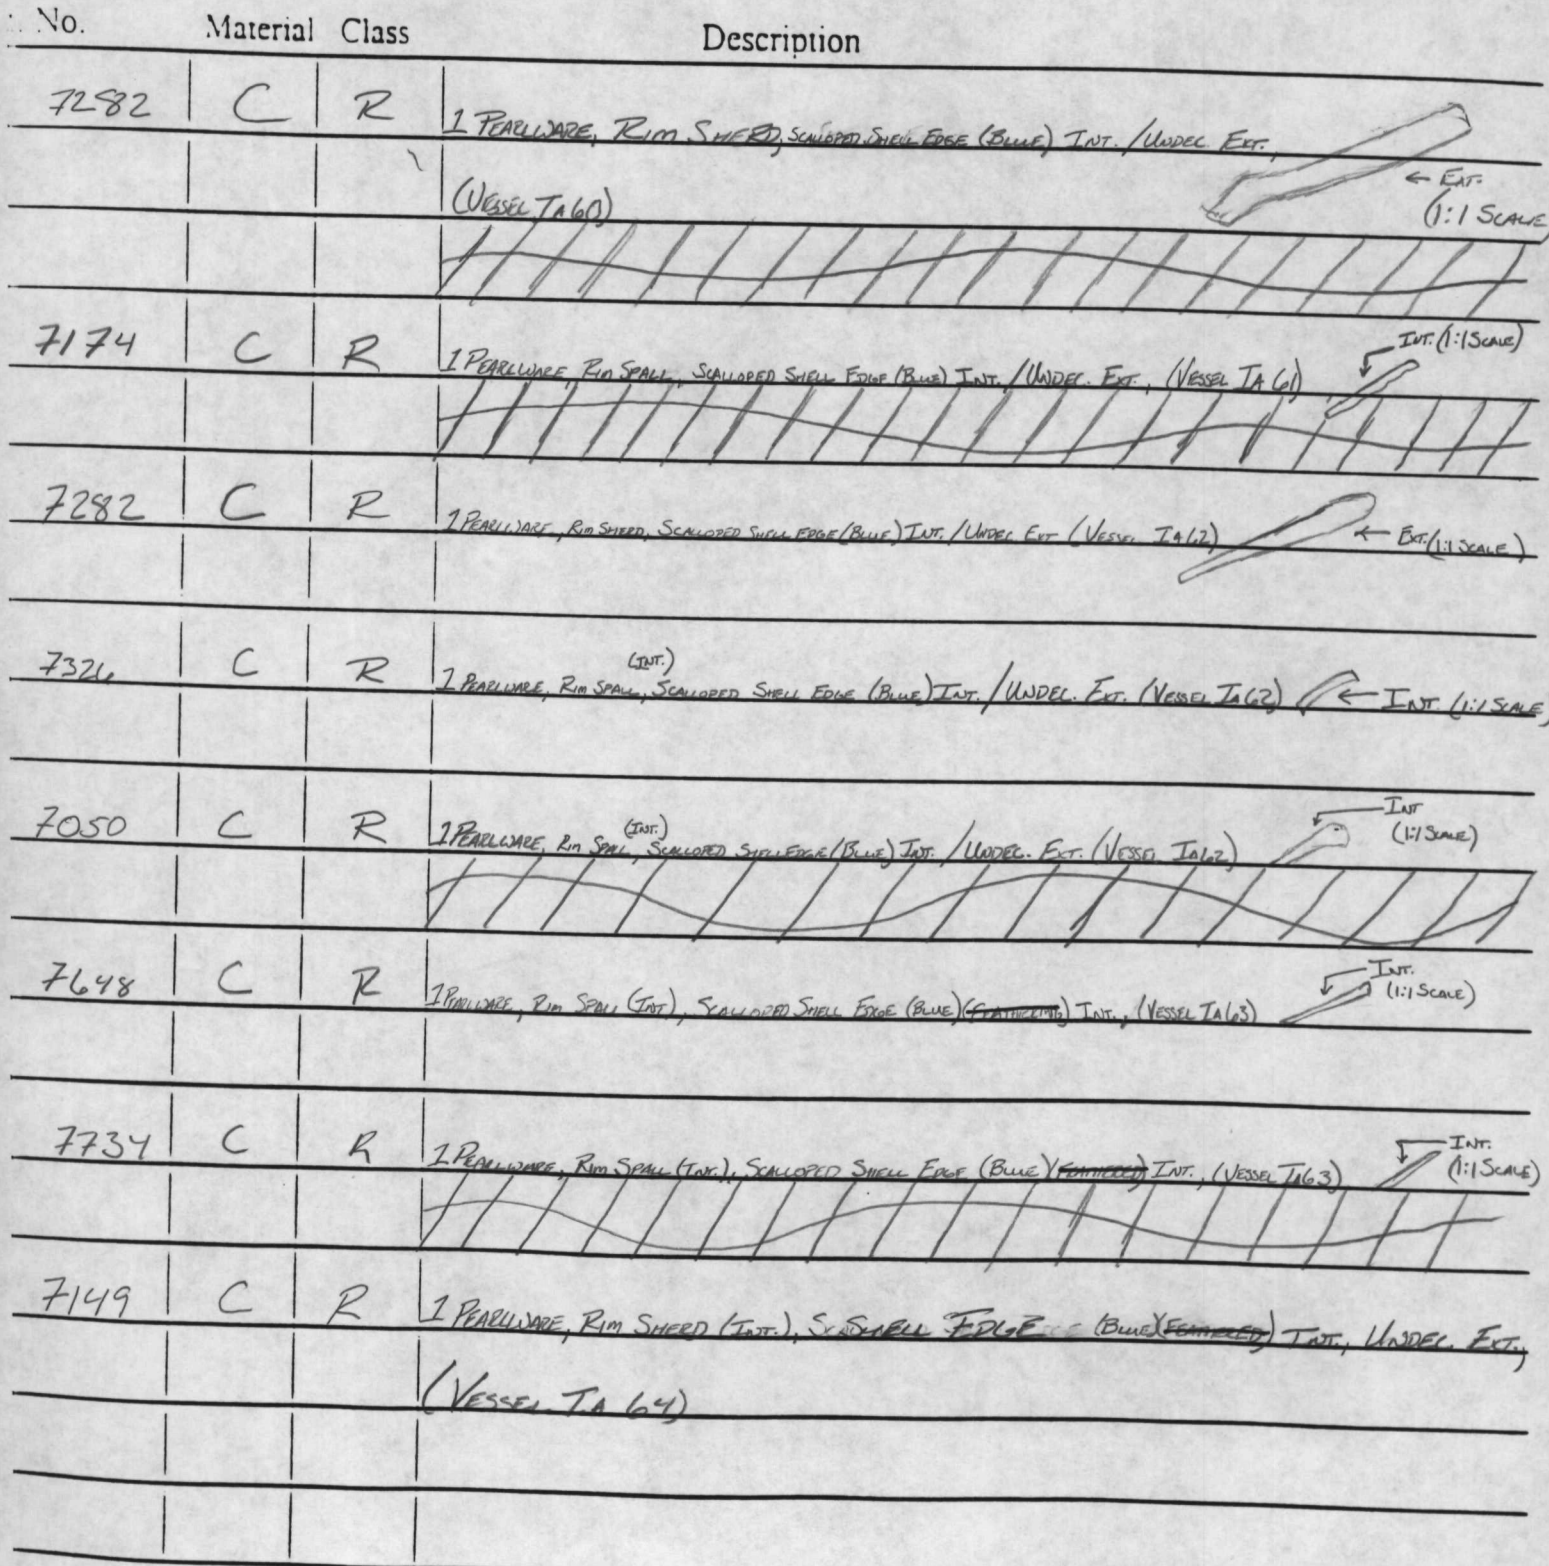 No. Material Class Description
7282 C R 1 PEARLWARE, RIM SHERD, SCALLOPED SHELL EDGE (BLUE) INT. / UNDEC EXT.,
← EXT.
(VESSEL IA61) (1:1 SCALE
7174 C R 1 PEARLWARE, RIM SPALL, SCALLOPED SHELL EDGE (BLUE) INT. / UNDEC. EXT., (VESSEL IA 61) INT. (1:1 SCALE)
7282 C R 1 PEARLWARE, RIM SHERD, SCALLOPED SHELL EDGE (BLUE) INT. / UNDEC EXT (VESSEL IA62) ← EXT. (1:1 SCALE)
(INT.)
7326 C R 1 PEARLWARE, RIM SPALL, SCALLOPED SHELL EDGE (BLUE) INT. / UNDEC. EXT. (VESSEL IA62) ← INT. (1:1 SCALE)
INT
(INT.) (1:1 SCALE)
7050 C R 1 PEARLWARE, RIM SPALL, SCALLOPED SHELL EDGE (BLUE) INT. / UNDEC. EXT. (VESSEL IA62)
INT.
(1:1 SCALE)
7648 C R 1 PEARLWARE, RIM SPALL (INT), SCALLOPED SHELL EDGE (BLUE) INT., (VESSEL IA63)
INT.
(1:1 SCALE)
7734 C R 1 PEARLWARE, RIM SPALL (INT.), SCALLOPED SHELL EDGE (BLUE) (FEATHERED) INT., (VESSEL IA63)
7149 C R 1 PEARLWARE, RIM SHERD (INT.), SHELL EDGE (BLUE) (FEATHERED) INT., UNDEC. EXT.,
(VESSEL IA 64)